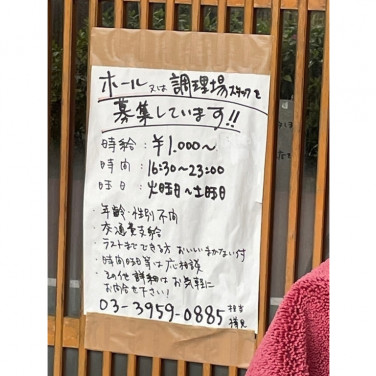 ホール又は調理場スタッフを
募集しています!!
時給：￥1.000〜
時間：16:30〜23:00
曜日：火曜日〜土曜日
・年齢・性別不問
・交通費支給
・ラストまでできる方 おいしいまかない付
・時間曜日等は応相談
・その他詳細はお気軽に
お問合せ下さい！
03-3959-0885 担当